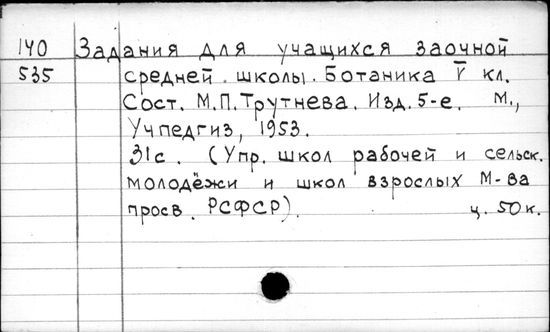 140 Задания для учащихся заочной
535 средней школы. Ботаника V кл.
Сост. М.П. Трутнева. Изд. 5-е. М.,
Учпедгиз, 1953.
31с. (Упр. школ рабочей и сельск.
молодёжи и школ взрослых М-ва
просв. РСФСР). ц. 50к.